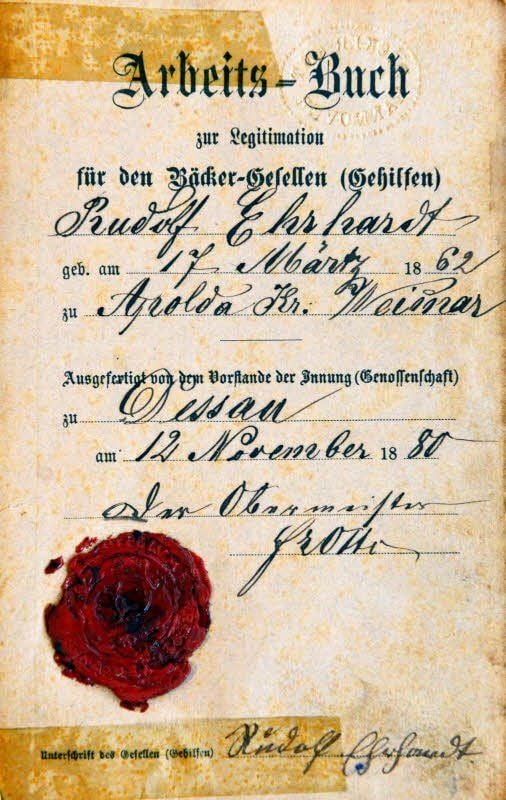 Arbeits-Buch
zur Legitimation
für den Bäcker-Gesellen (Gehilfen)
Rudolf Ehrhardt
geb. am 17 Märtz 1862
zu Apolda Kr. Weimar
Ausgefertigt von dem Vorstande der Innung (Genossenschaft)
zu Dessau
am 12 November 1880
Der Obermeister
Unterschrift des Gesellen (Gehilfen) Rudolf Ehrhardt